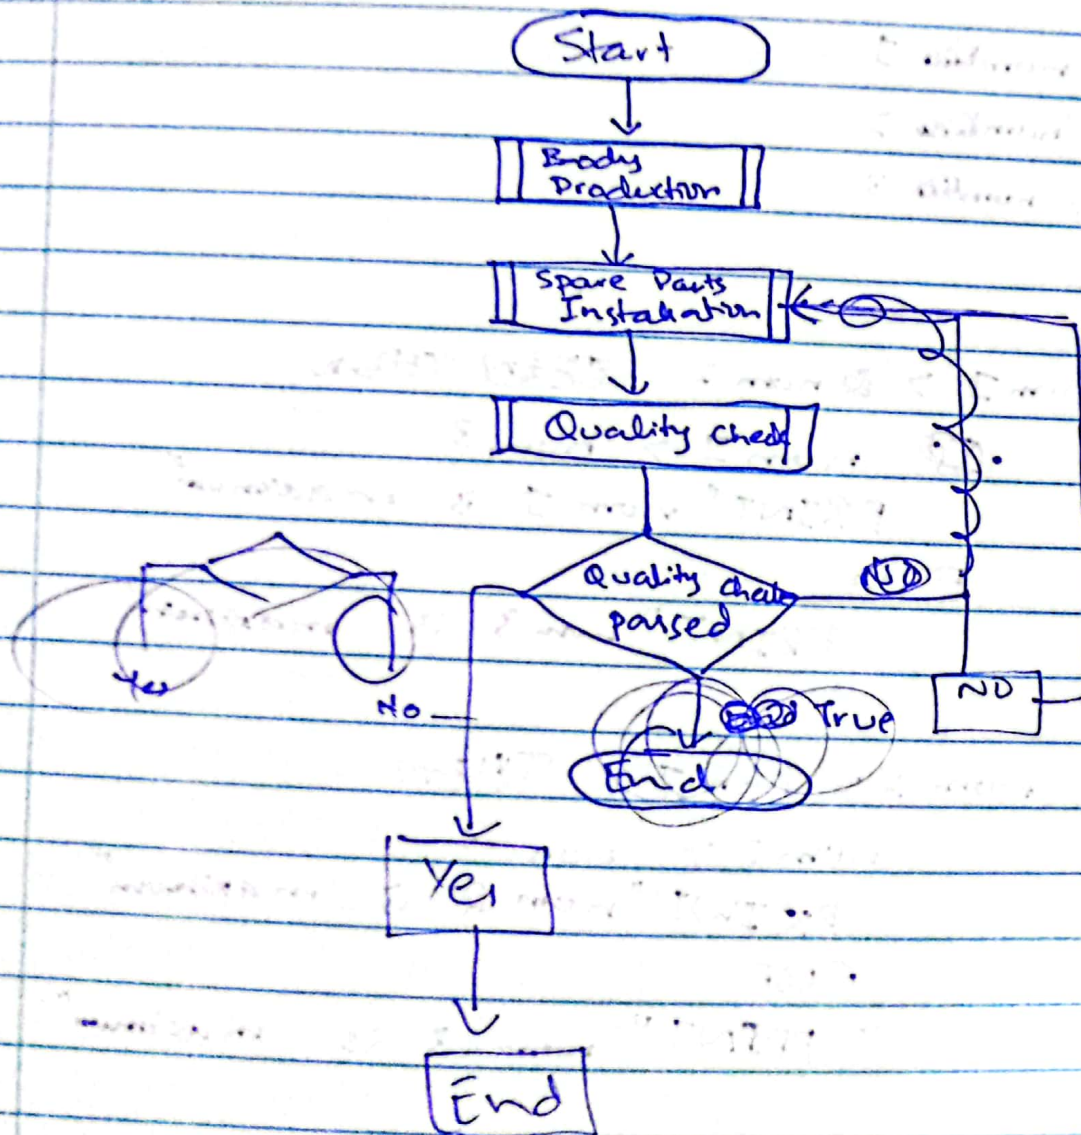 Start
Body
Production
Spare Parts
Installation
Quality check
Quality check
passed
NO
Yes
No
True
NO
End
Yes
End